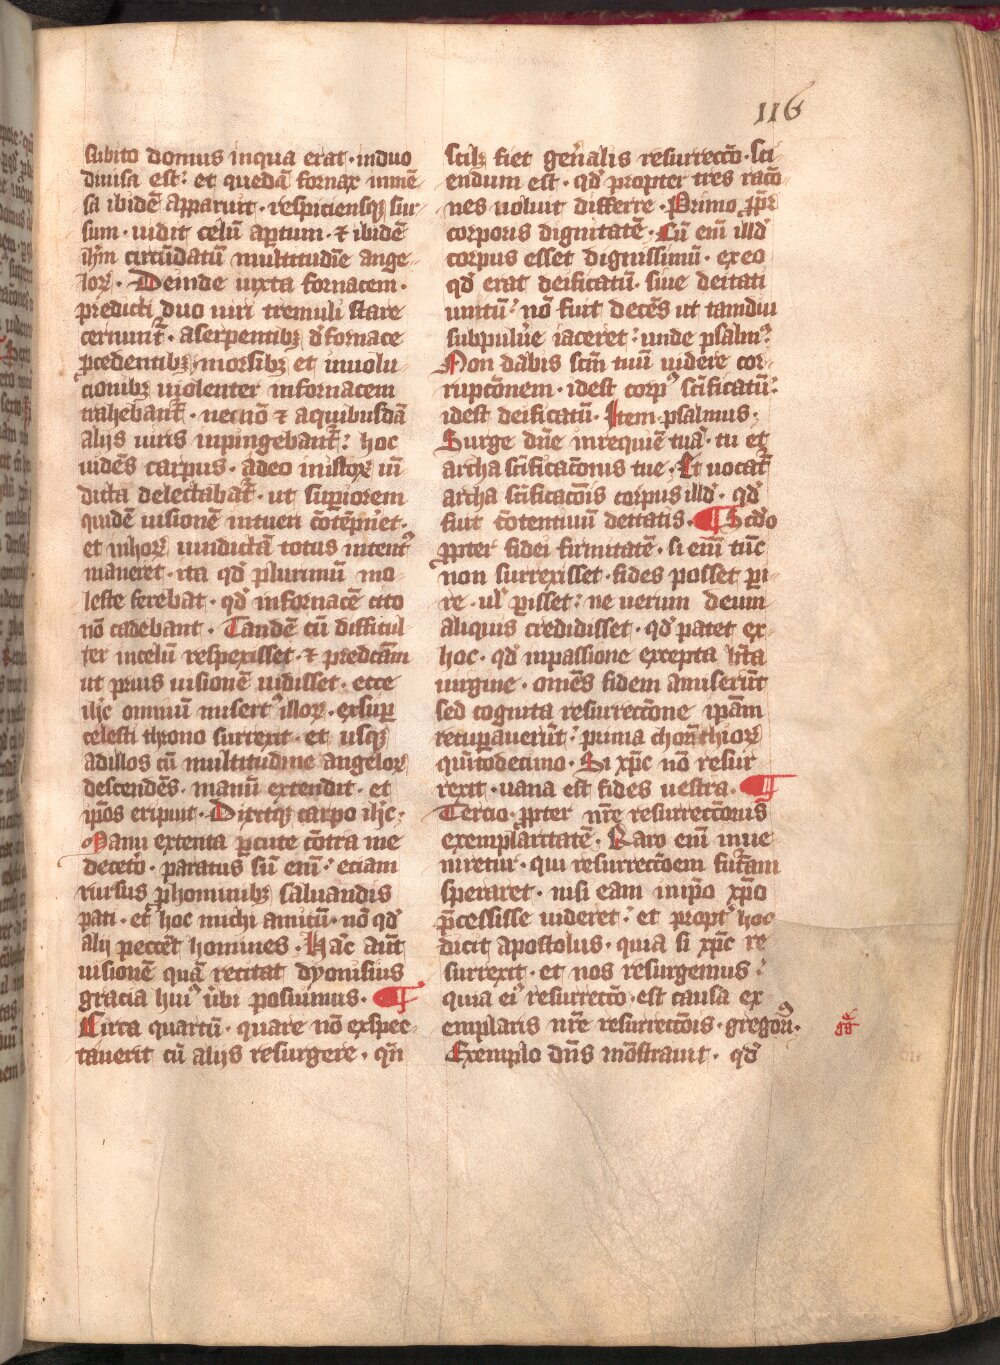 116
subito domus inqua erat · induo
diuisa est: et quedā fornax inmē-
sa ibidē apparuit · respiciensqꝫ sur
sum · uidit celū aꝑtum · ⁊ ibidē
ihm̄ circūdatū multitudīe ange-
loꝝ · Deinde iuxta fornacem ·
predicti duo uiri tremuli stare
cernunt᷑ · aserpentibꝫ d̓ fornace
ꝓcedentibꝫ morsibꝫ et inuolu
cionibꝫ uiolenter infornacem
trahebant᷑ · necnō ⁊ aquibusdā
alijs uiris inpingebant᷑: hoc
uidēs carpus · adeo inistoꝝ uī-
dicta delectabat᷑ · ut suꝑiorem
quidē uisionē intueri ↄ̄tēpn̄et ·
et inhoꝝ uindictā totus intentꝰ
maneret · ita qd̓ plurimū mo-
leste ferebat · qd̓ infornacē cito
nō cadebant · Tandē cū difficul
ter incelū respexisset · ⁊ predc̄am
ut prius uisionē uidisset · ecce
ih̄c omniū misertꝰ illoꝝ · exsuꝑ
celesti throno surrexit · et usqꝫ
adillos cū multitudine angeloꝝ
descendēs · manū extendit · et
ip̄os eripuit · Dixitqꝫ carpo ih̄c ·
Manu extenta ꝑcute cōtra me
decet̓o · paratus sū em̄ · etiam
rursus ꝓ hominibꝫ saluandis
pati · et hoc michi amicū · nō qd̓
alij peccēt homines · Hāc aūt
uisionē quā recitat dyonisius
gracia huiꝰ ibi posuimus · ¶
Circa quartū · quare nō exspec-
tauerit cū alijs resurgere · qn̄
scilꝫ fiet gen̓alis resurreccō · sci
endum est · qd̓ propter tres racō-
nes uoluit differre · Primo ꝓpt̓
corporis dignitatē · Cū em̄ illd̓
corpus esset dignissimū · exeo
qd̓ erat deificatū · siue deitati
unitū: nō fuit decēs ut tamdiu
subpulu̓e iaceret: unde psalmꝰ
Non dabis scm̄ tuū uidere cor-
rupcōnem · idest corpꝰ sc̄ificatū:
idest deificatū · Item psalmus ·
Surge dn̄e inrequiē tuā · tu et
archa sc̄ificacōnis tue · Et uocat᷑
archa sc̄ificacōis corpus illd̓ · qd̓
fuit cōtentiuū deitatis · ¶ Scd̓o
ꝓpter fidei firmitatē · si em̄ tūc
non surrexisset · fides posset ꝑi-
re · ul̓ ꝑisset: ne uerum deum
aliquis credidisset · qd̓ patet ex
hoc · qd̓ inpassione excepta bt̄a
uirgine · omēs fidem amiserūt
sed cognita resurreccōne ip̄am
recuꝑauerūt: prima chorīthioꝝ
quītodecimo · Si xp̄c nō resur
rexit · uana est fides uestra · ¶
Tercio ꝓpter nr̄e resurreccōnis
exemplaritatē · Raro em̄ inue
niretur · qui resurreccōem futuram
speraret · nisi eam inip̄o xp̄o
p̄cessisse uideret: et propt̓ hoc
dicit apostolus · quia si xp̄c re
surrexit · et nos resurgemus:
quia eiꝰ resurreccō · est causa ex
emplaris nr̄e resurreccōis · gregori᷑ ·
Exemplo dn̄s mōstrauit · qd̓